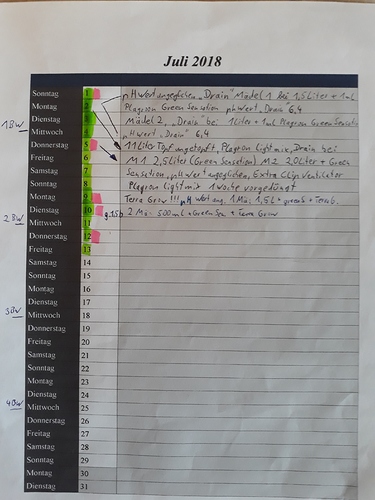 Juli 2018
Sonntag 1 pH Wert angeglichen „Drain" Mädel 1 bei 1,5 Liter + 1mL
Montag 2 Plagron Green Sensation pH wert „Drain" 6,4
Dienstag 3 Mädel 2 „Drain" bei 1 Liter + 1mL Plagron Green Sensation
1BW Mittwoch 4 pH wert „Drain" 6,4
Donnerstag 5 11 Liter Topf umgetopft, Plagron Lightmix, Drain bei
Freitag 6 M1 2,5 Liter (Green Sensation) M2 2,0 Liter + Green
Samstag 7 Sensation, pH wert angeglichen, Extra Clip Ventilator
Sonntag 8 Plagron Lightmix 1 Woche vorgedüngt
Montag 9 Terra Grow !!! pH wert ang. 1 Mä. 1,5L +
Dienstag 10 2 Mä. 500mL + Green Sen + Terra Grow
2.BW Mittwoch 11
Donnerstag 12
Freitag 13
Samstag 14
Sonntag 15
Montag 16
Dienstag 17
3BW Mittwoch 18
Donnerstag 19
Freitag 20
Samstag 21
Sonntag 22
Montag 23
Dienstag 24
4BW Mittwoch 25
Donnerstag 26
Freitag 27
Samstag 28
Sonntag 29
Montag 30
Dienstag 31